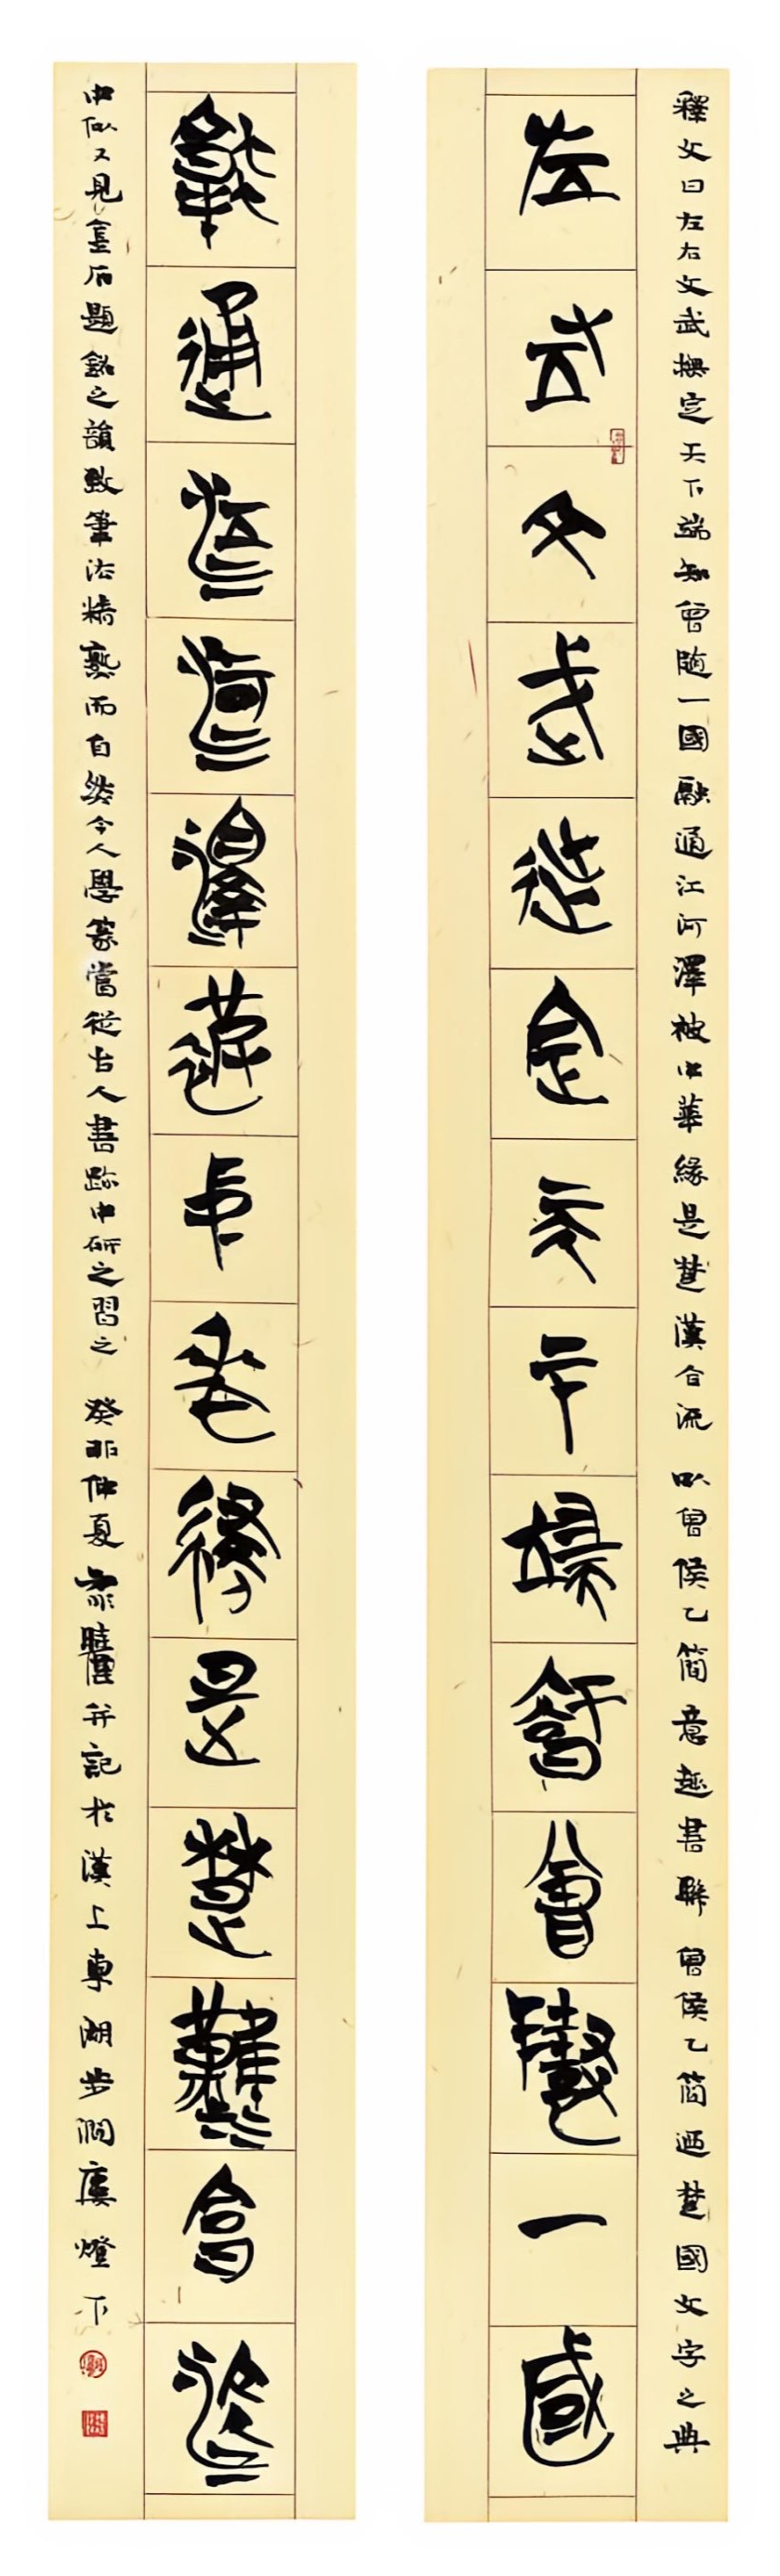 釋文曰左右文武撰定天下端知曾隨一國融通江河澤被中華緣是楚漢合流 以曾侯乙簡意趣書聯 曾侯乙簡迺楚國文字之典
左右文武撰定天下端知曾隨一國
融通江河澤被中華緣是楚漢合流
中以又見金石題銘之韻致筆法精熟而自然今人學篆當從古人書跡中研之習之 癸卯仲夏 并記於漢上東湖步澗廬燈下